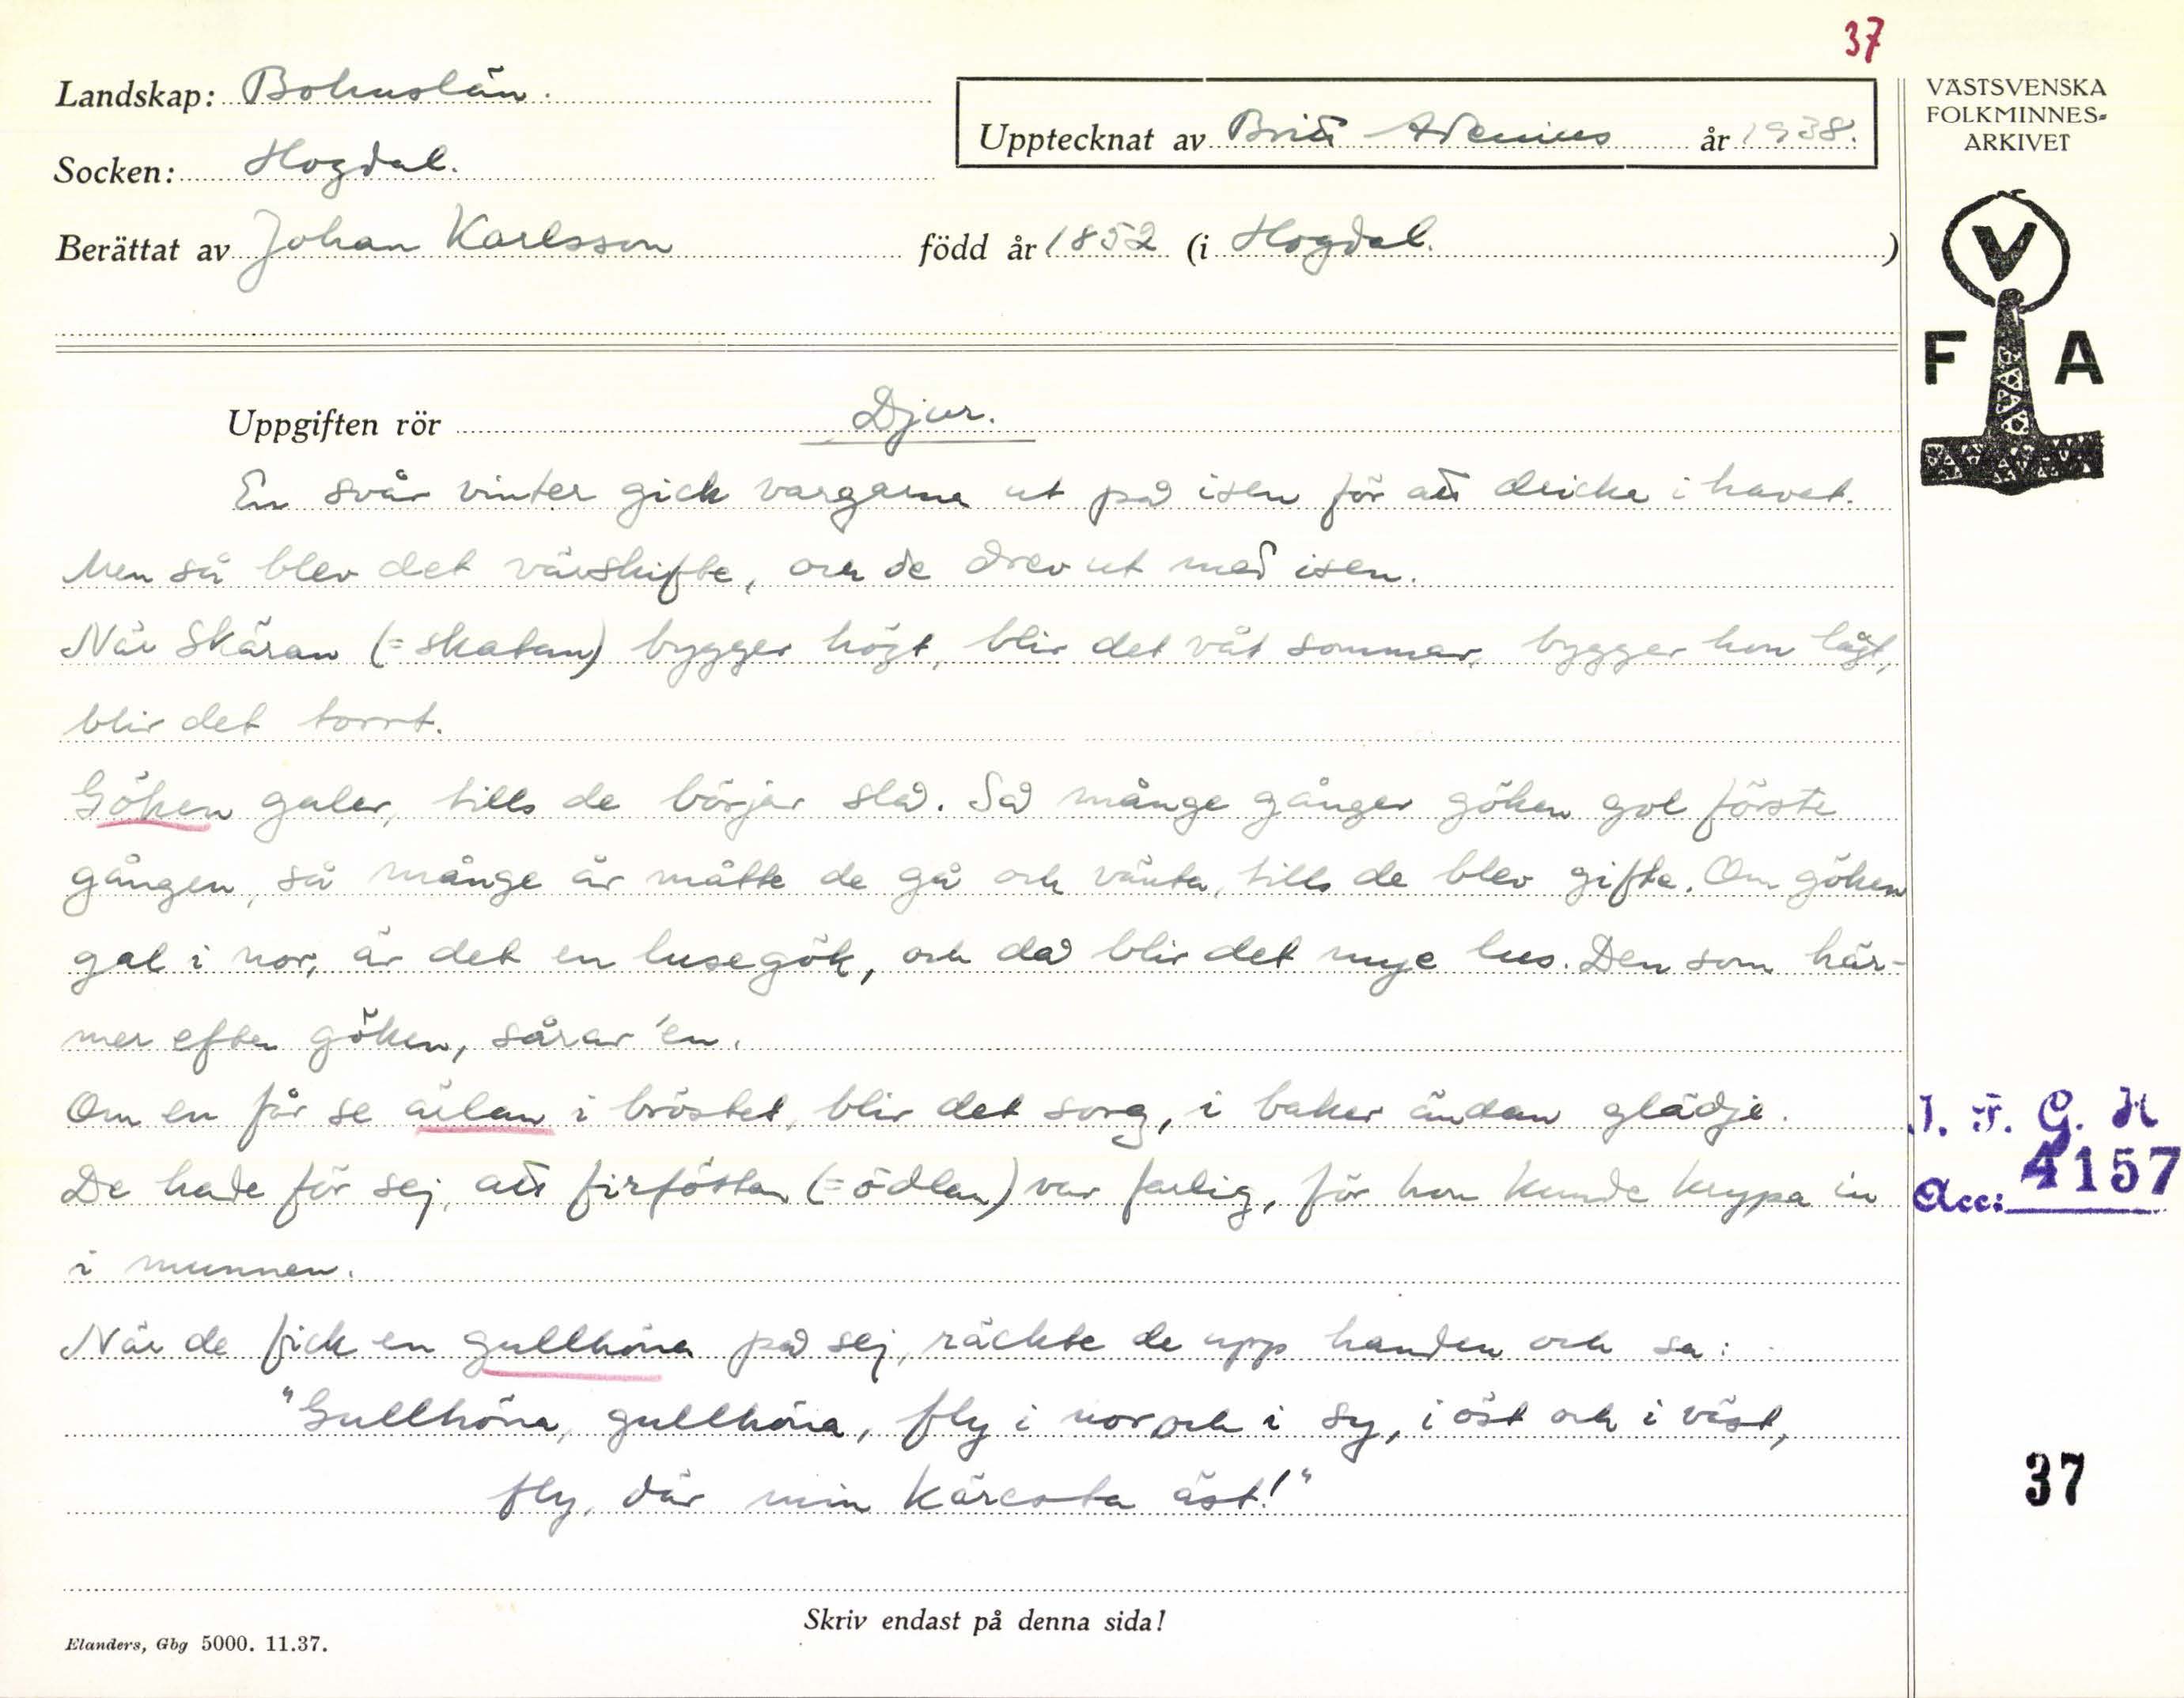 37
Landskap: Bohuslän.
Upptecknat av Britt Avenius år 1938.
VÄSTSVENSKA
FOLKMINNES-
ARKIVET
Socken: Hogdal.
Berättat av Johan Karlsson född år 1852 (i Hogdal.)
V
F A
Uppgiften rör Djur.
En svår vinter gick vargarna ut på isen för att dricka i havet.
Men så blev det vävskifte, och de drev ut med isen.
När Skäran (= skatan) bygger högt, blir det våt sommar, bygger hon lågt,
blir det torrt.
Göken galer, tills de börjar slå. Så många gånger göken gol första
gången, så många år måtte de gå och vänta, tills de blev gifta. Om göken
gal i nor, är det en lusegök, och då blir det mye lus. Den som här-
mer efter göken, sårar 'en.
Om en får se ärlan i bröstet, blir det sorg, i baker ändan glädje.
De hade för sej, att firföttan (= ödlan) var farlig, för hon kunde krypa in
i munnen.
När de fick en gullhöna på sej, räckte de upp handen och sa:
"Gullhöna, gullhöna, fly i nor och i sy, i öst och i väst,
fly, där min käresta äst!"
I. F. G. H
Acc: 4157
37
Skriv endast på denna sida!
Elanders, Gbg 5000. 11.37.